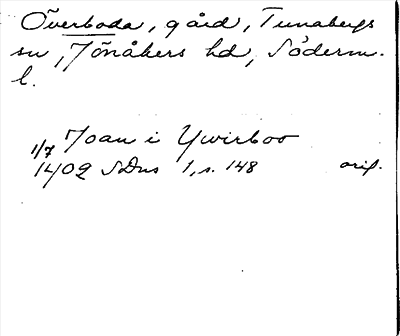 Överboda, gård, Tunabergs
sn, Jönåkers hd, Söderm.
l.
Joan i Ywirboo
1/7 1402 SDns 1, s. 148 orig.